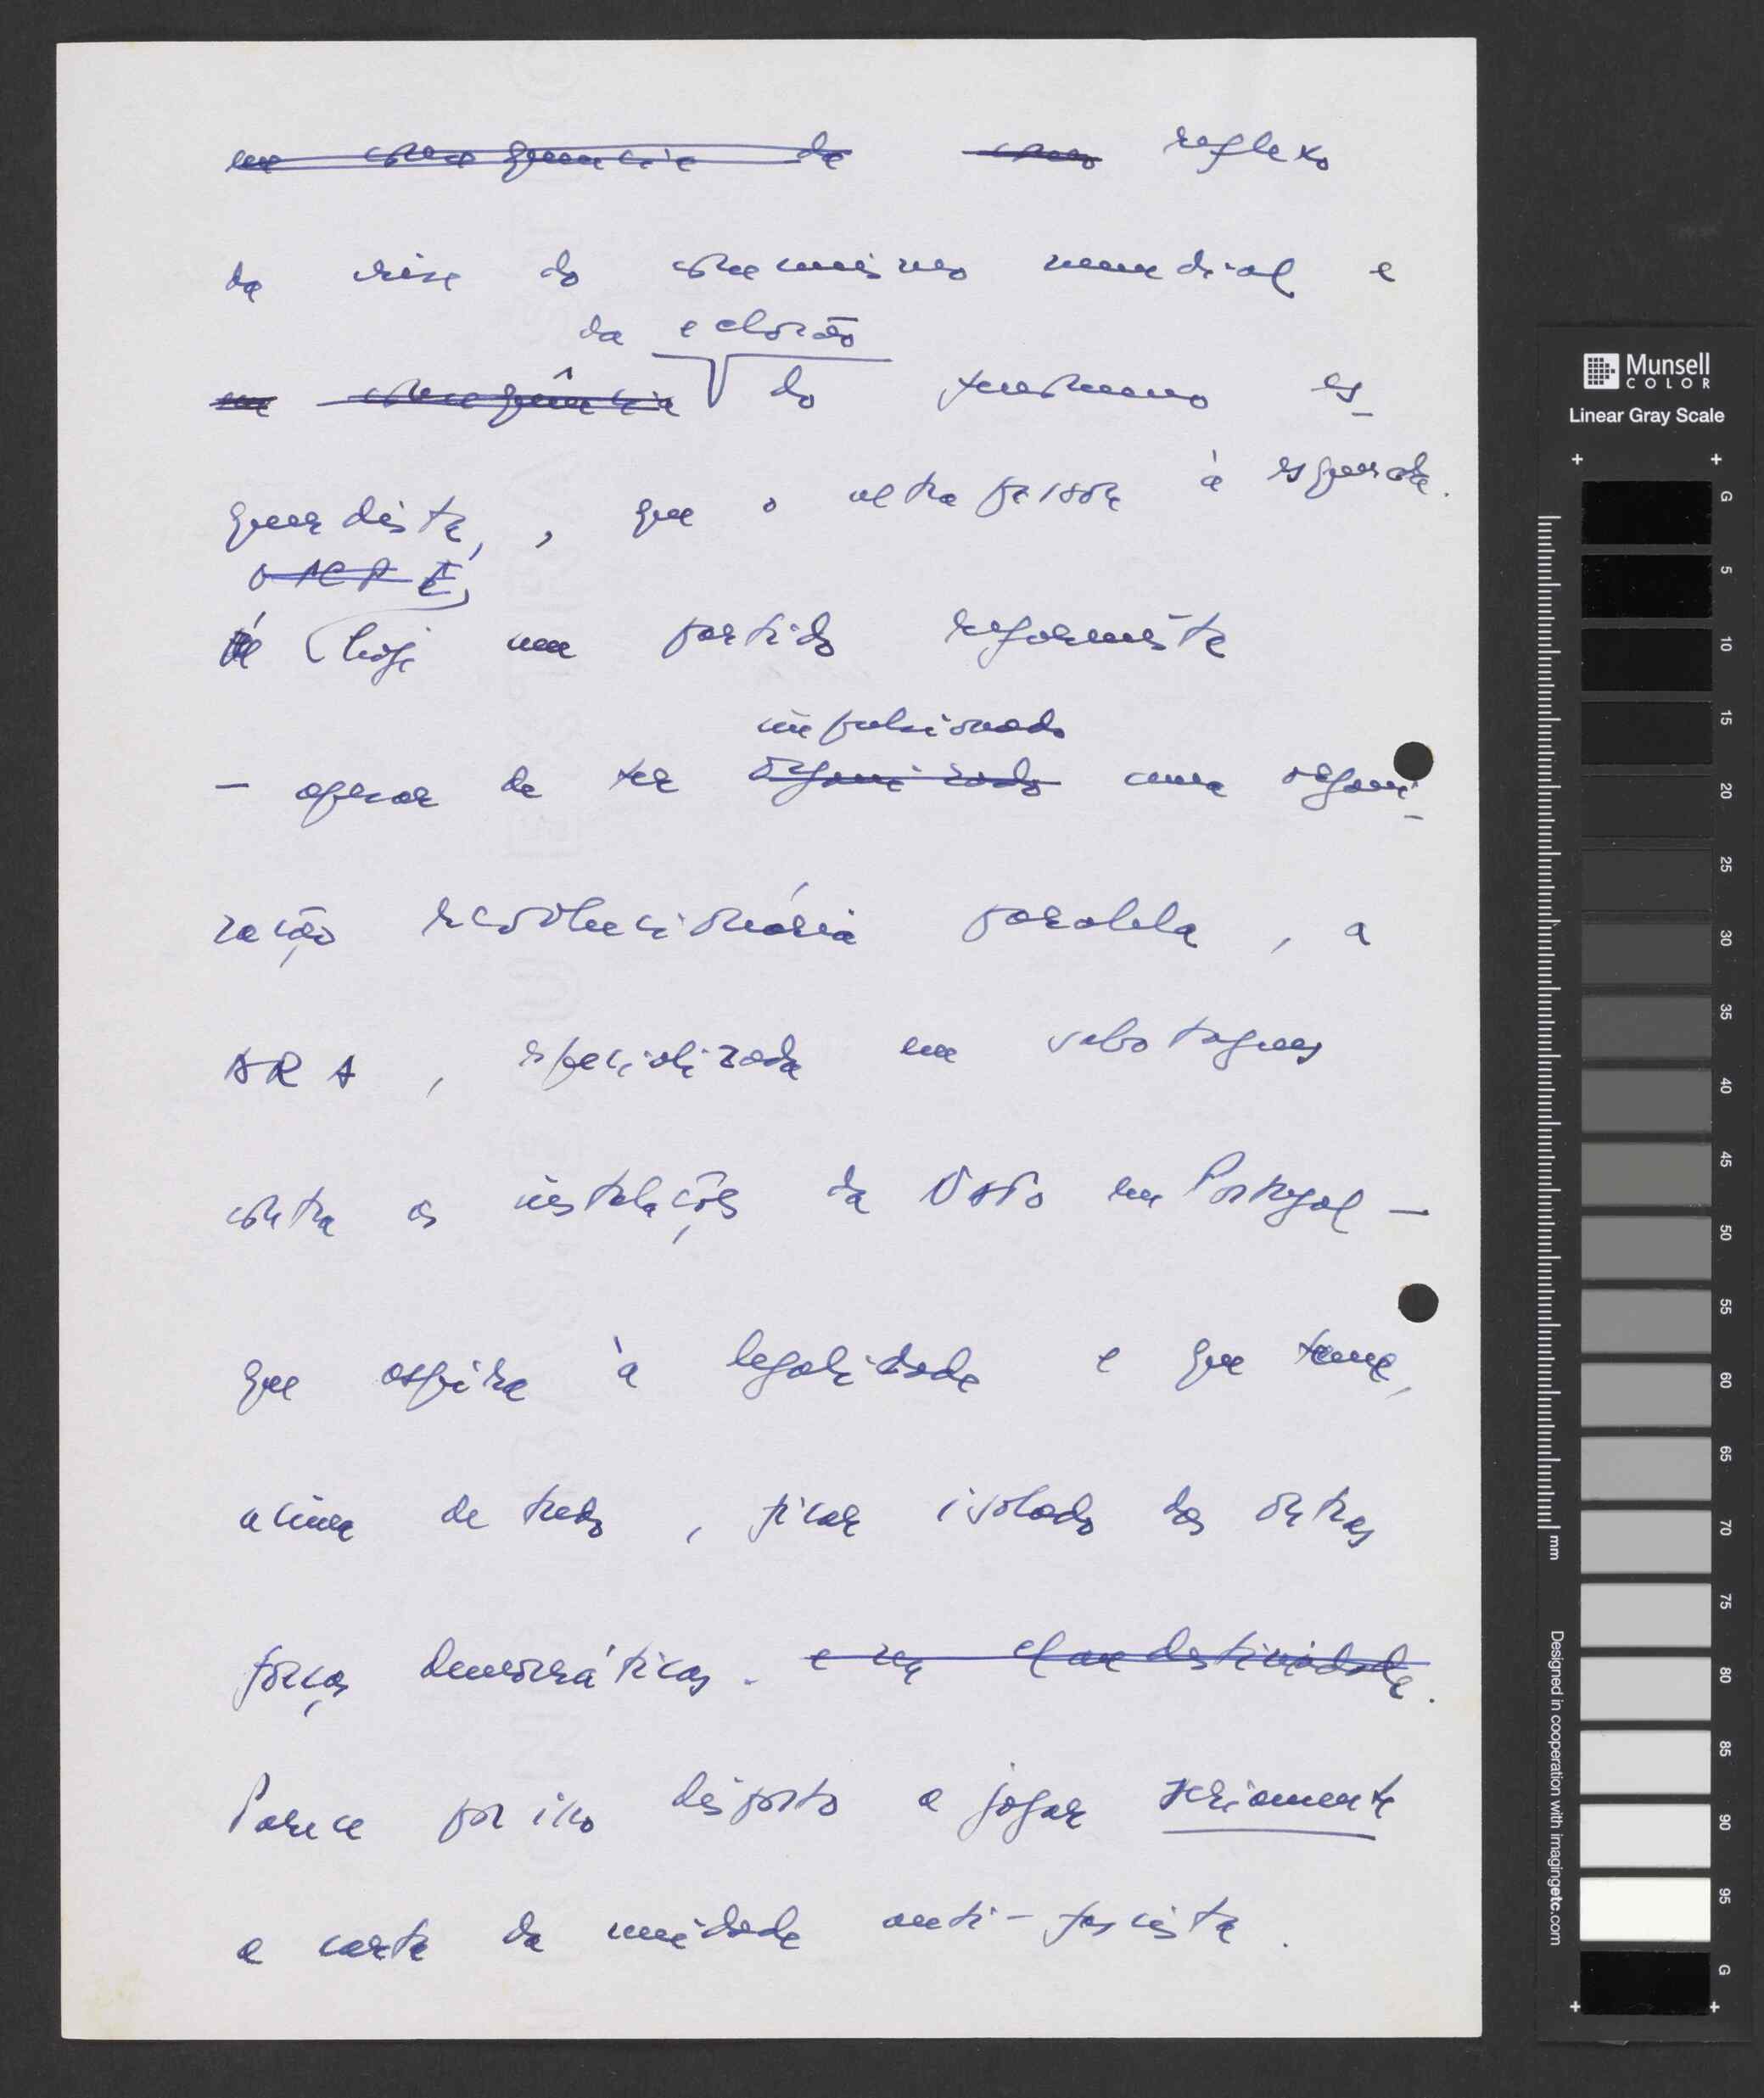 em consequencia da como reflexo
da crise do comunismo mundial e
da eclosão
em consequência do fenómeno es-
querdista, , que o ultrapassa à esquerda.
O PCP É
é hoje um partido reformista
impulsionado
— apesar de ter organizado uma organi-
zação revolucionária paralela, a
ARA, especializada em sabotagens
contra as instalações da Nato em Portugal —
que aspira à legalidade e que teme,
acima de tudo, ficar isolado das outras
forças democráticas. e na clandestinidade.
Parece por isso disposto a jogar seriamente
a carta da unidade anti-fascista.
Munsell
COLOR
Linear Gray Scale
G
5
10
15
20
25
30
35
40
45
50
55
60
65
70
75
80
85
90
95
G
mm
Designed in cooperation with imagingetc.com